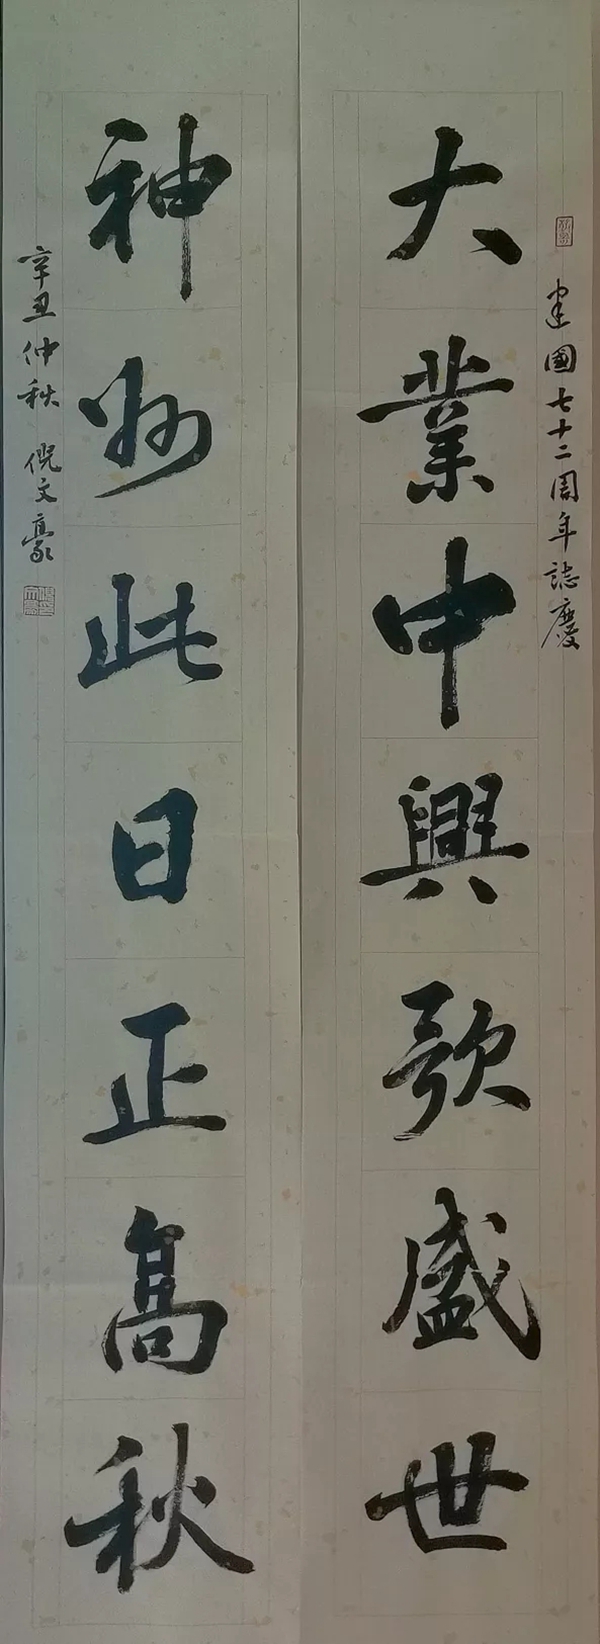 建國七十二周年誌慶
大業中興歌盛世
神州此日正高秋
辛丑仲秋 倪文豪